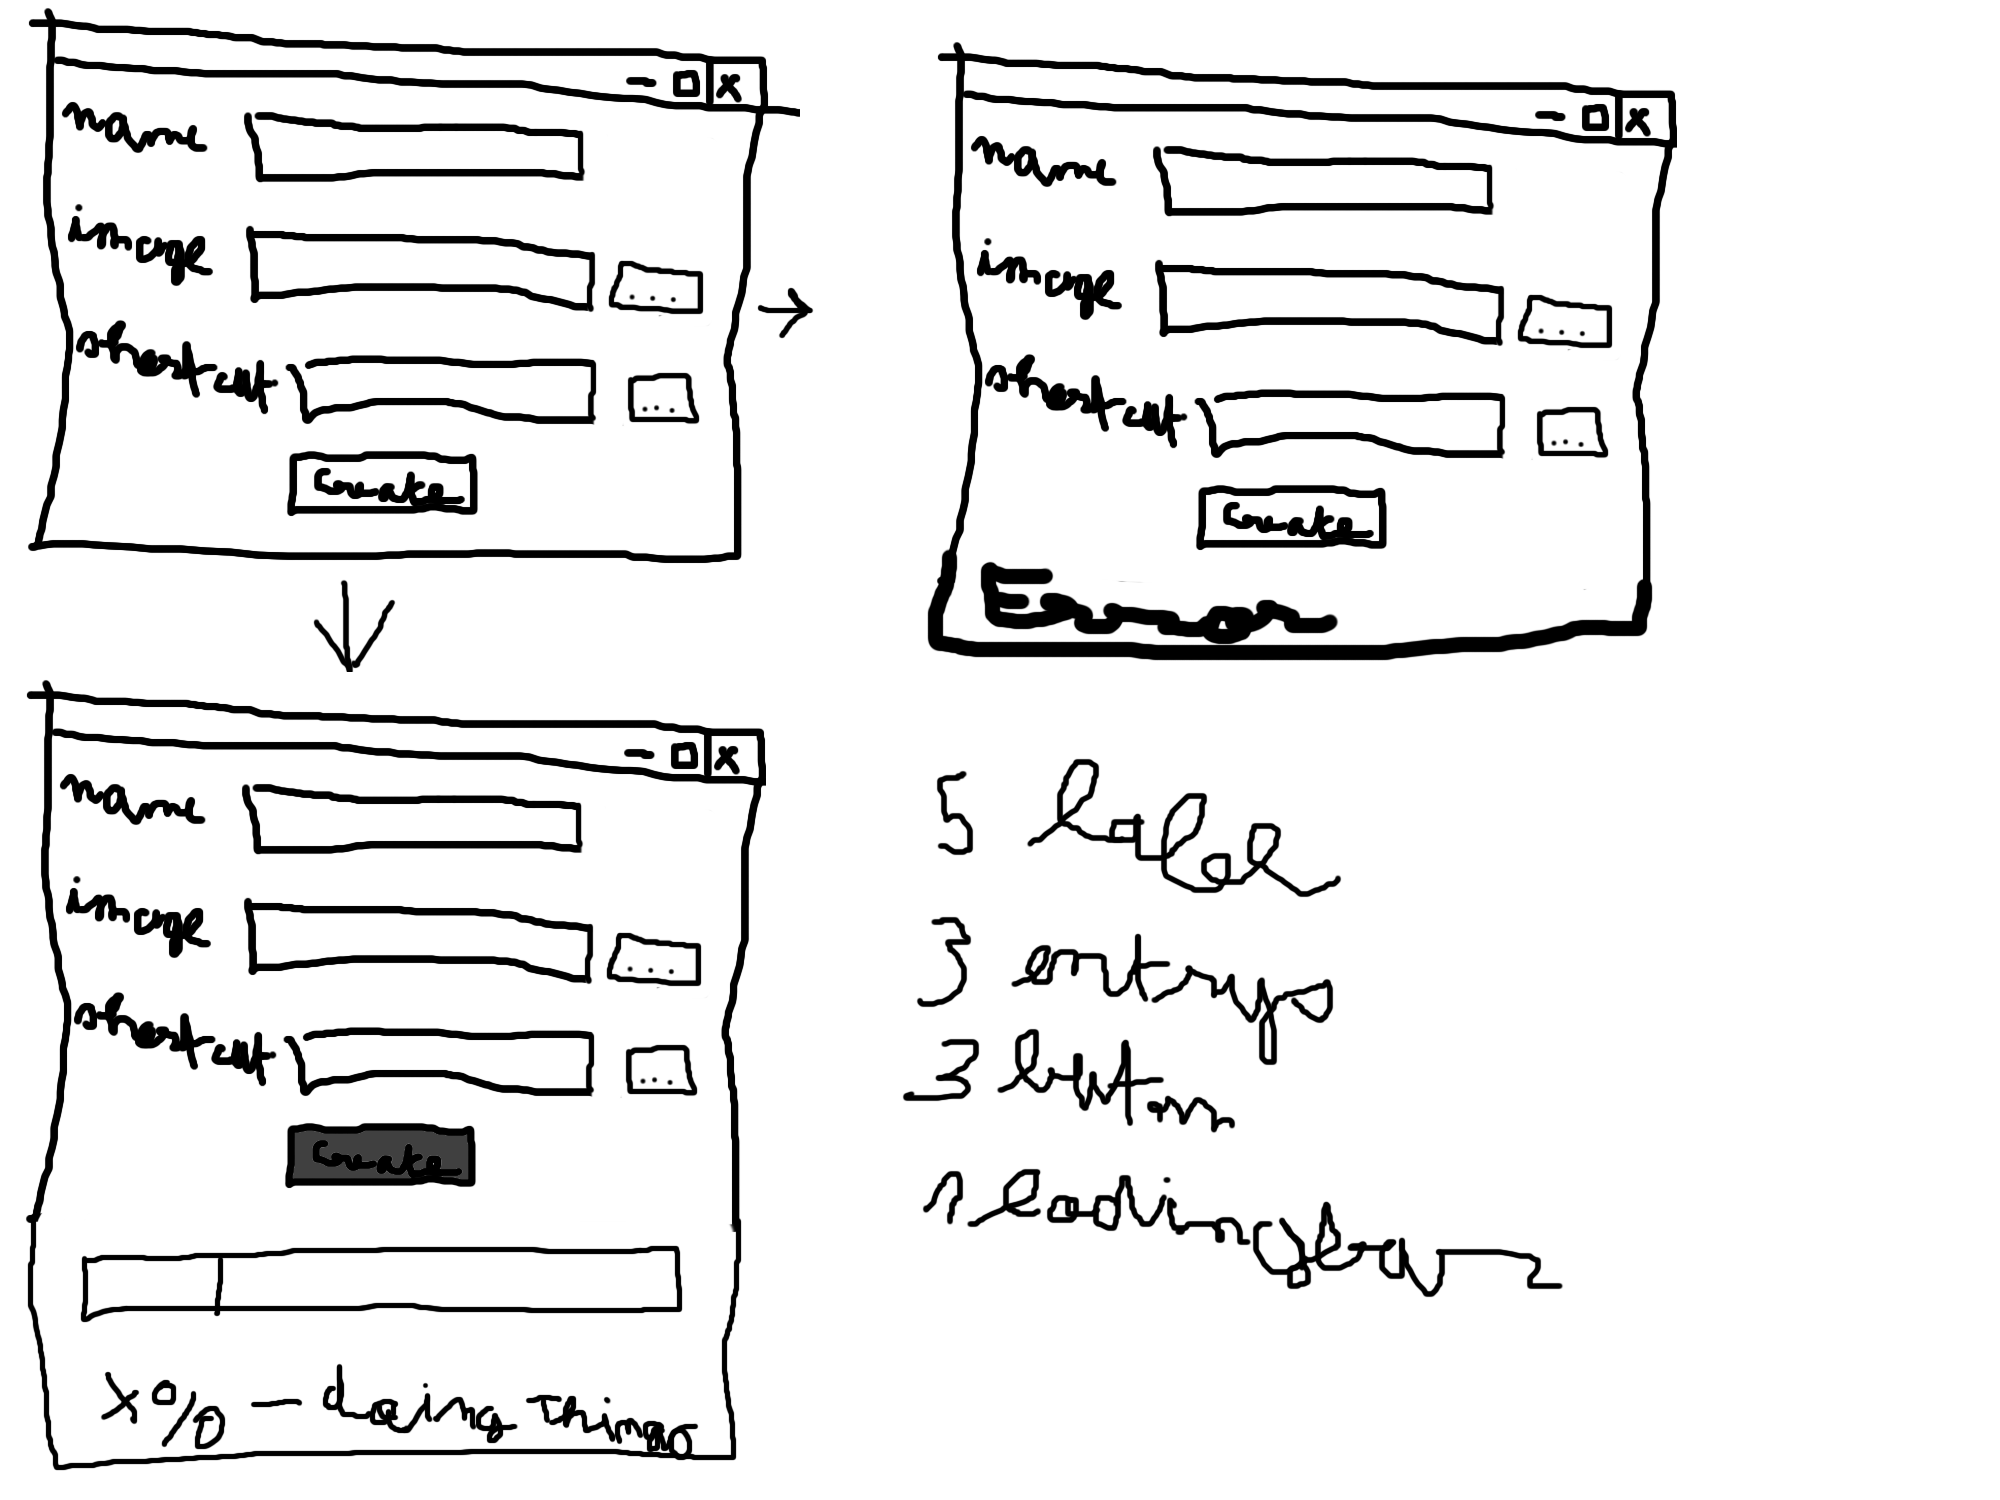 - □ x
name
image
...
shortcut
...
Create
- □ x
name
image
...
shortcut
...
Create
Error
- □ x
name
image
...
shortcut
...
Create
X% - doing things
5 label
3 entry
3 button
1 loadingbar